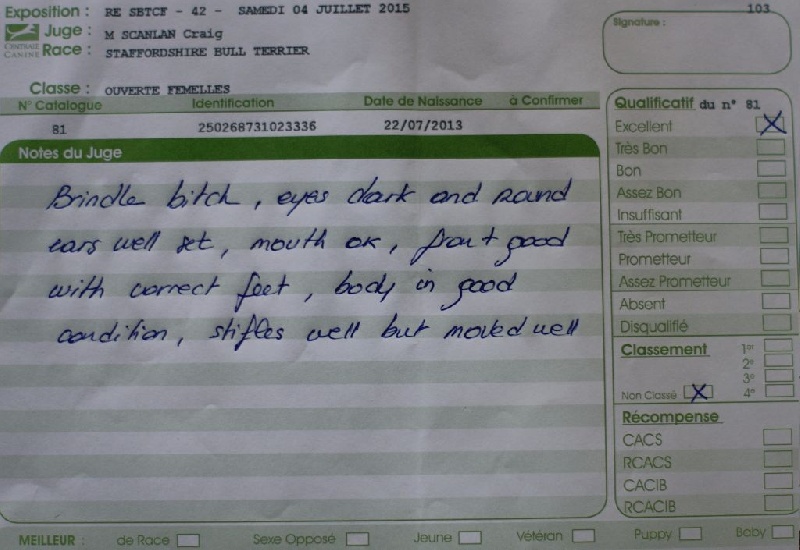 Exposition : RE SBTCF - 42 - SAMEDI 04 JUILLET 2015
103
Juge : M SCANLAN Craig
CENTRALE CANINE
Race : STAFFORDSHIRE BULL TERRIER
Signature :
Classe : OUVERTE FEMELLES
N° Catalogue Identification Date de Naissance à Confirmer
81 250268731023336 22/07/2013
Notes du Juge
Brindle bitch, eyes dark and round
ears well set, mouth ok, front good
with correct feet, body in good
condition, stifles well but moved well
Qualificatif du n° 81
Excellent X
Très Bon
Bon
Assez Bon
Insuffisant
Très Prometteur
Prometteur
Assez Prometteur
Absent
Disqualifié
Classement 1er
2e
3e
Non Classé X 4e
Récompense
CACS
RCACS
CACIB
RCACIB
MEILLEUR : de Race Sexe Opposé Jeune Vétéran Puppy Baby